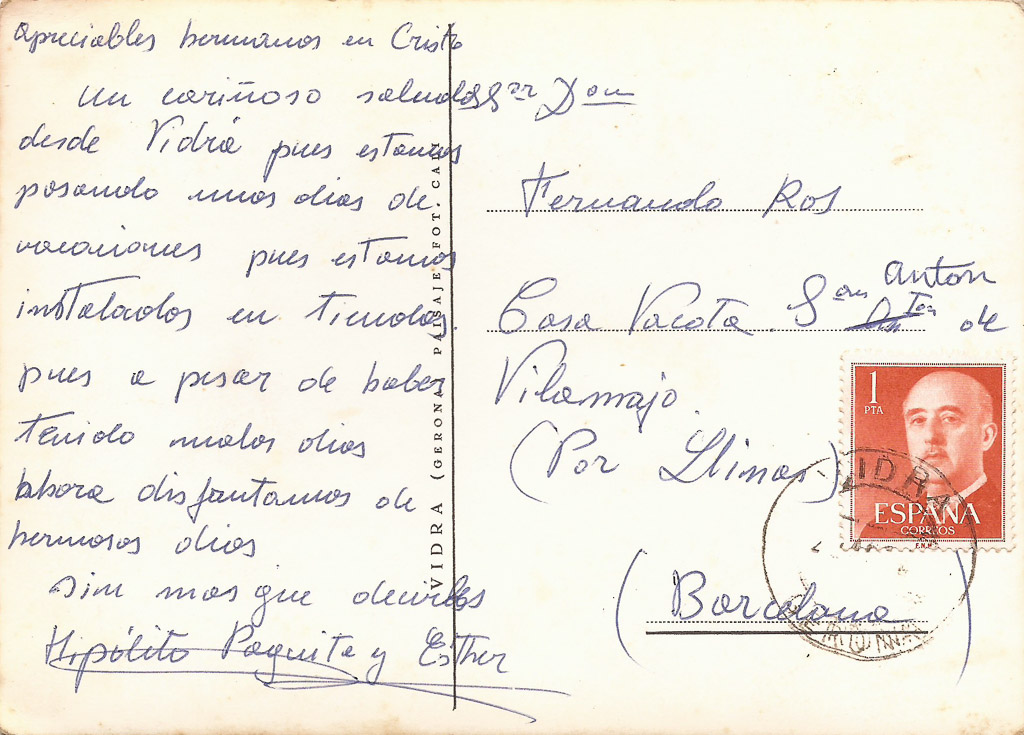 Apreciables hermanos en Cristo
Un cariñoso saludos
desde Vidrá pues estamos
pasando unos dias de
vacaciones pues estamos
instalados en tiendas.
pues a pesar de haber
tenido malos dias
ahora disfrutamos de
hermosos dias
sin mas que decirles
Hipólito Paquita y Esther
VIDRA (GERONA) PAISAJE FOT. CAN
Sr Don
Fernando Ros
Casa Vacota. San Anton de
Vilamajo.
(Por Llinas)
(Barcelona)
1
PTA
ESPAÑA
CORREOS
VIDRA
GERONA